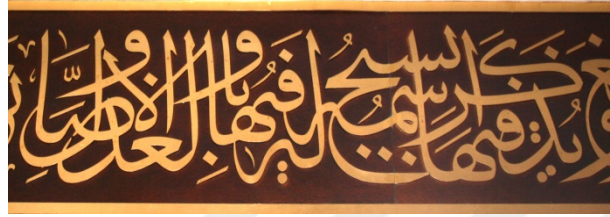 ويذكر فيها اسمه يسبح له فيها بالغدو والاصال